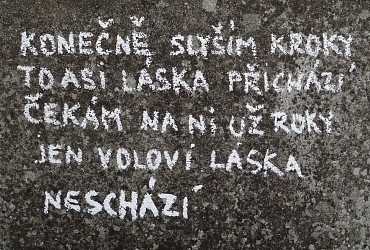 KONEČNĚ SLYŠÍM KROKY
TO ASI LÁSKA PŘICHÁZÍ
ČEKÁM NA NÍ UŽ ROKY
JEN VOLOVI LÁSKA
NESCHÁZÍ